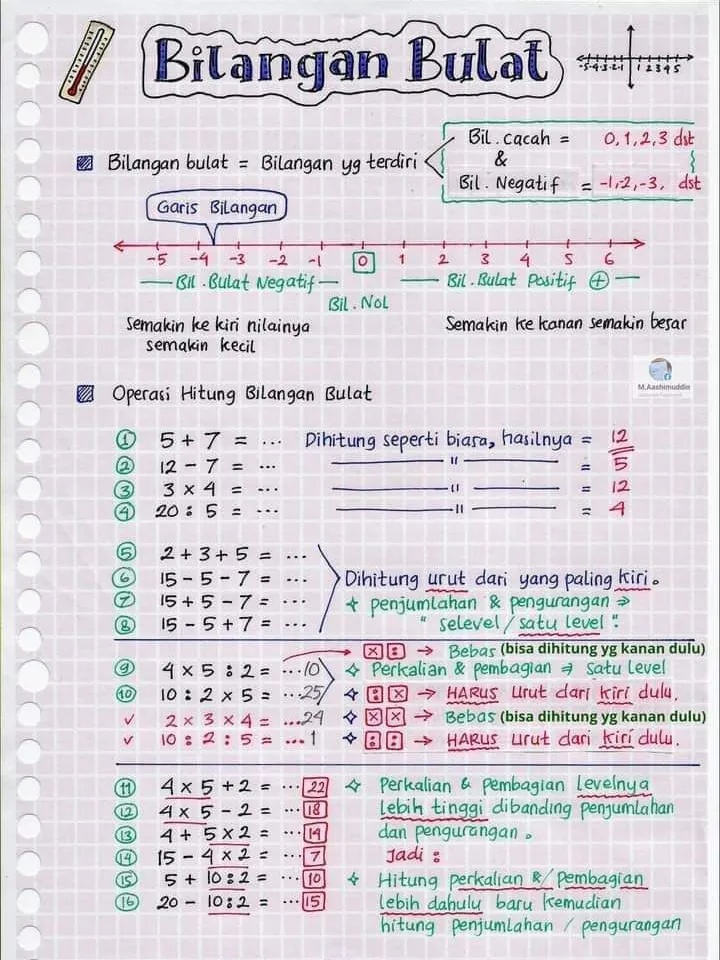 Bilangan Bulat
-5-4-3-2-1 1 2 3 4 5
Bilangan bulat = Bilangan yg terdiri
Bil. cacah = 0,1,2,3 dst
&
Bil. Negatif = -1,-2,-3, dst
Garis Bilangan
-5 -4 -3 -2 -1 0 1 2 3 4 5 6
Bil. Bulat Negatif
Bil. Nol
Bil. Bulat Positif +
Semakin ke kiri nilainya
semakin kecil
Semakin ke kanan semakin besar
M.Aashimuddin
Operasi Hitung Bilangan Bulat
1 5 + 7 = ... Dihitung seperti biasa, hasilnya = 12
2 12 - 7 = ... " = 5
3 3 x 4 = ... " = 12
4 20 : 5 = ... " = 4
5 2 + 3 + 5 = ...
6 15 - 5 - 7 = ...
7 15 + 5 - 7 = ...
8 15 - 5 + 7 = ...
Dihitung urut dari yang paling kiri.
✦ penjumlahan & pengurangan ⇒
" selevel / satu level "
x : → Bebas (bisa dihitung yg kanan dulu)
9 4 x 5 : 2 = ...10 ✦ Perkalian & pembagian ⇒ satu level
10 10 : 2 x 5 = ...25 ✦ : x → HARUS urut dari kiri dulu.
✓ 2 x 3 x 4 = ...24 ✦ x x → Bebas (bisa dihitung yg kanan dulu)
✓ 10 : 2 : 5 = ...1 ✦ : : → HARUS urut dari kiri dulu.
11 4 x 5 + 2 = ... 22
12 4 x 5 - 2 = ... 18
13 4 + 5 x 2 = ... 14
14 15 - 4 x 2 = ... 7
15 5 + 10 : 2 = ... 10
16 20 - 10 : 2 = ... 15
✦ Perkalian & Pembagian levelnya
lebih tinggi dibanding penjumlahan
dan pengurangan.
Jadi :
✦ Hitung perkalian &/ Pembagian
lebih dahulu baru kemudian
hitung penjumlahan / pengurangan